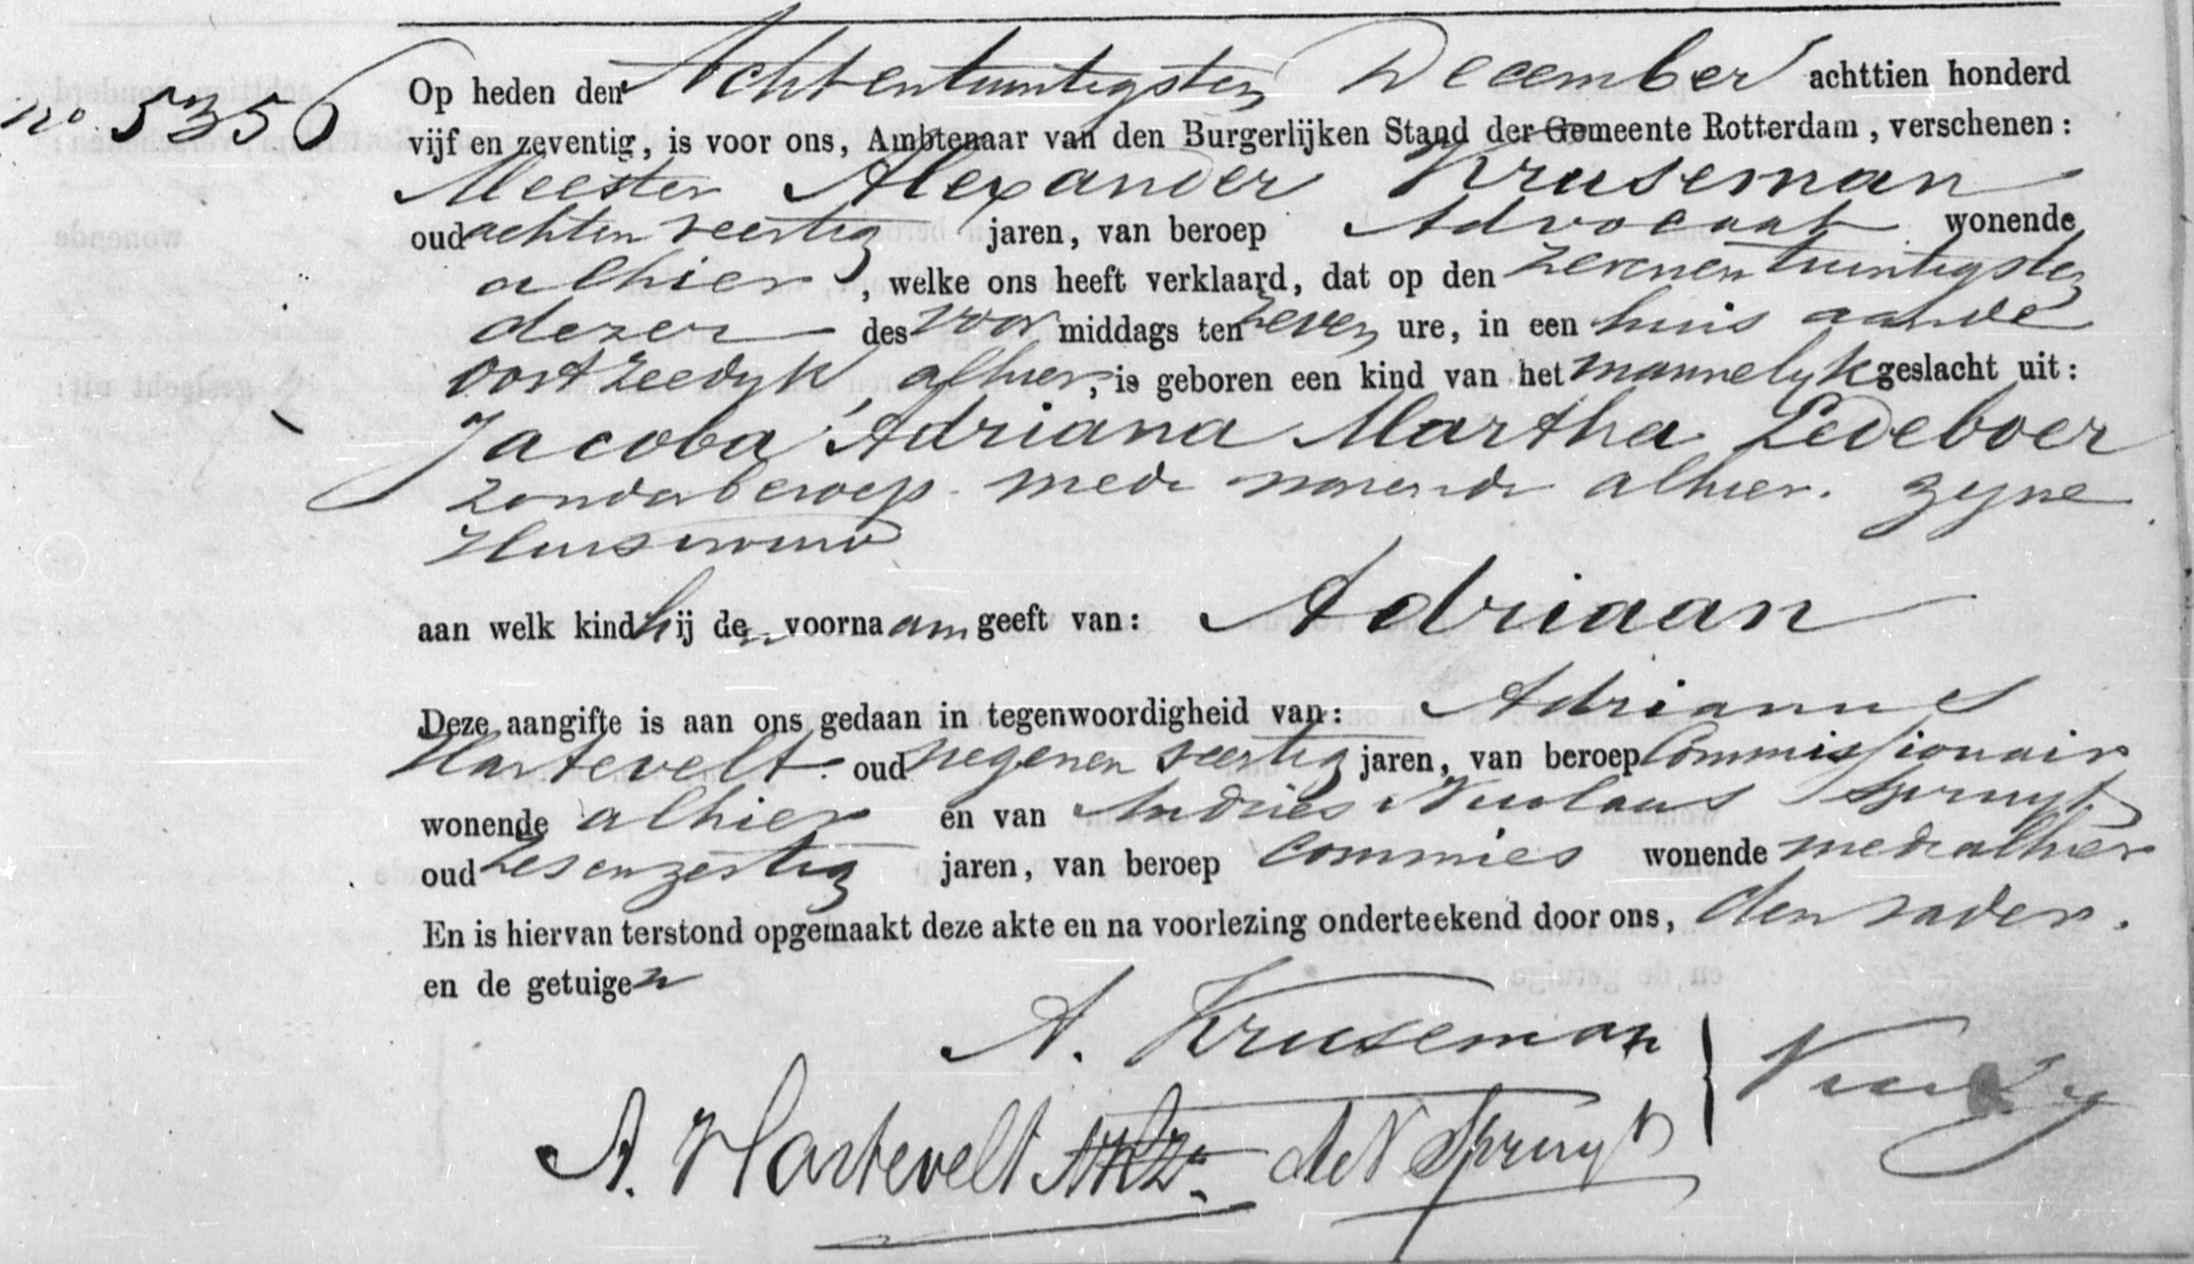 no 5356
Op heden den Achtentwintigsten December achttien honderd
vijf en zeventig, is voor ons, Ambtenaar van den Burgerlijken Stand der Gemeente Rotterdam, verschenen:
Meester Alexander Kruseman
oud achtenveertig jaren, van beroep Advocaat wonende
alhier, welke ons heeft verklaard, dat op den zevenentwintigsten
dezer des voormiddags ten zeven ure, in een huis aan de
Oostzeedyk alhier, is geboren een kind van het mannelyk geslacht uit:
Jacoba Adriana Martha Ledeboer
zonder beroep mede wonende alhier. zyne
Huisvrouw
aan welk kind hij den voornaam geeft van: Adriaan
Deze aangifte is aan ons gedaan in tegenwoordigheid van: Adrianus
Hartevelt oud negenenveertig jaren, van beroep Commissionair
wonende alhier en van Andries Nicolaas Spruyt
oud zesenzestig jaren, van beroep Commies wonende mede alhier
En is hiervan terstond opgemaakt deze akte en na voorlezing onderteekend door ons, den vader.
en de getuigen
A. Kruseman
A. Hartevelt AN Spruyt